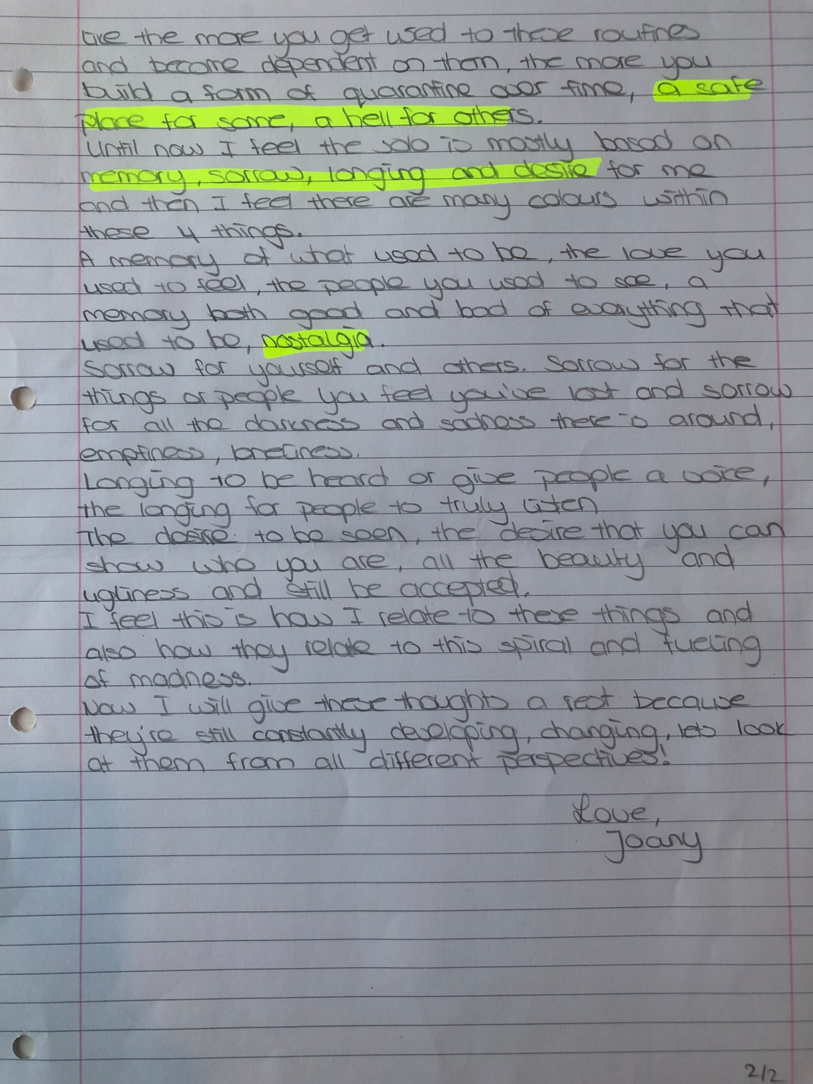 like the more you get used to these routines
and become dependent on them, the more you
build a form of quarantine over time, a safe
place for some, a hell for others.
Until now I feel the solo is mostly based on
memory, sorrow, longing and desire for me
and then I feel there are many colours within
these 4 things.
A memory of what used to be, the love you
used to feel, the people you used to see, a
memory both good and bad of everything that
used to be, nostalgia.
Sorrow for yourself and others. Sorrow for the
things or people you feel you've lost and sorrow
for all the darkness and sadness there is around,
emptiness, loneliness.
Longing to be heard or give people a voice,
the longing for people to truly listen
The desire to be seen, the desire that you can
show who you are, all the beauty and
ugliness and still be accepted.
I feel this is how I relate to these things and
also how they relate to this spiral and fueling
of madness.
Now I will give these thoughts a rest because
they're still constantly developing, changing, lets look
at them from all different perspectives!
Love,
Joany
2/2